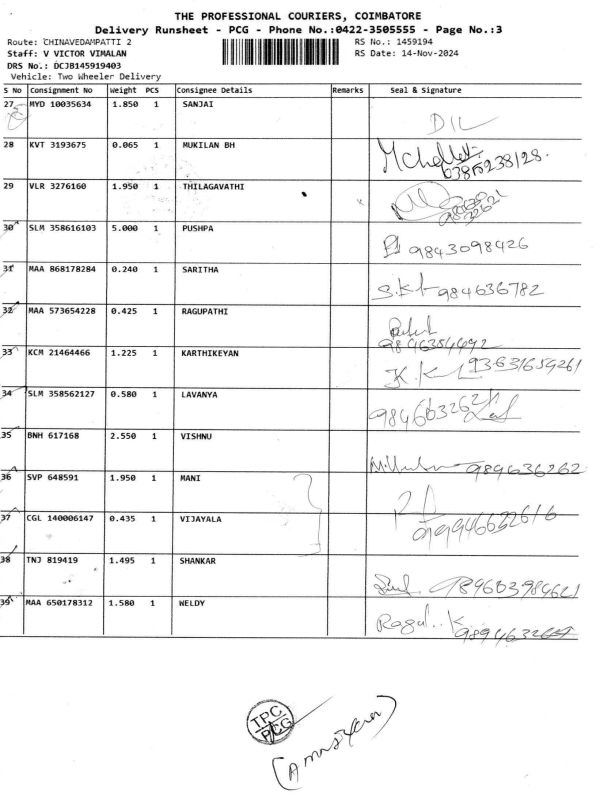 THE PROFESSIONAL COURIERS, COIMBATORE
Delivery Runsheet - PCG - Phone No.:0422-3505555 - Page No.:3
Route: CHINAVEDAMPATTI 2 RS No.: 1459194
Staff: V VICTOR VIMALAN RS Date: 14-Nov-2024
DRS No.: DCJB145919403
Vehicle: Two Wheeler Delivery
S No Consignment No Weight PCS Consignee Details Remarks Seal & Signature
27 MYD 10035634 1.850 1 SANJAI
DIL
28 KVT 3193675 0.065 1 MUKILAN BH
29 VLR 3276160 1.950 1 THILAGAVATHI
30 SLM 358616103 5.000 1 PUSHPA
9843098426
31 MAA 868178284 0.240 1 SARITHA
984636782
32 MAA 573654228 0.425 1 RAGUPATHI
33 KCM 21464466 1.225 1 KARTHIKEYAN
34 SLM 358562127 0.580 1 LAVANYA
35 BNH 617168 2.550 1 VISHNU
9894636262
36 SVP 648591 1.950 1 MANI
37 CGL 140006147 0.435 1 VIJAYALA
38 TNJ 819419 1.495 1 SHANKAR
39 MAA 650178312 1.580 1 WELDY
TPC
PCG